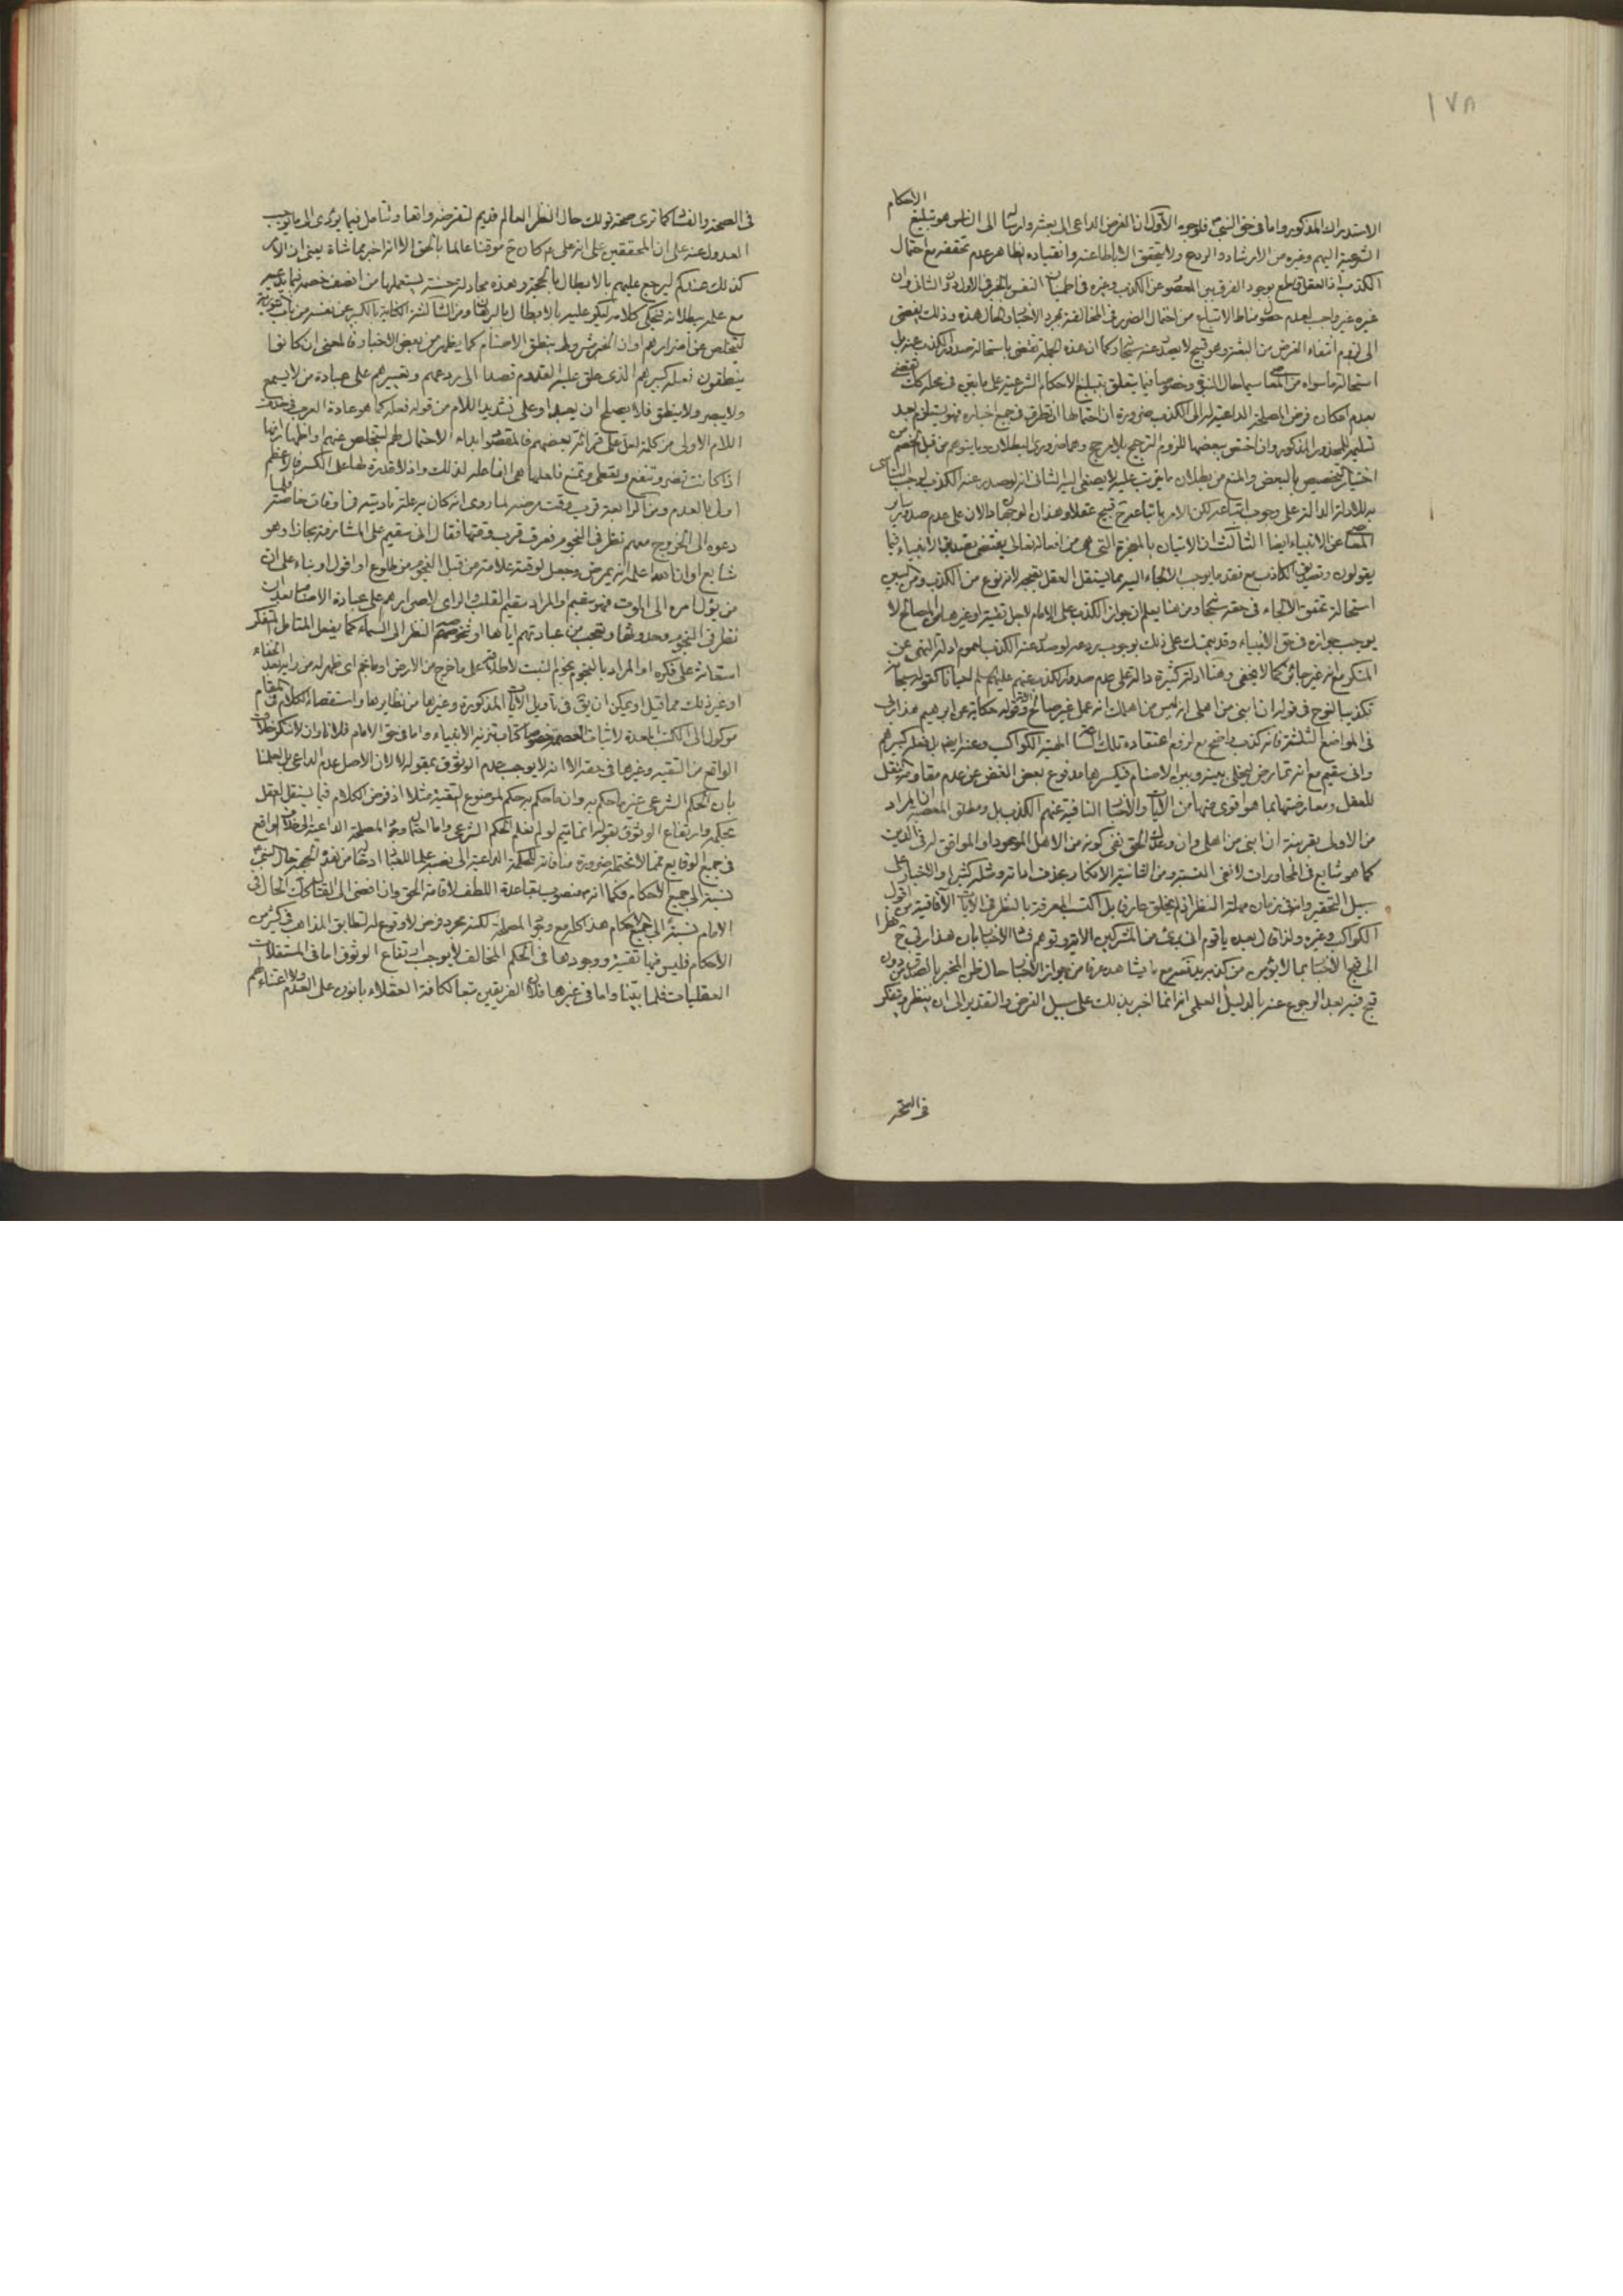 ١٧٨
الاحكام
الاستدراك المذكور واما فى حق النبى فلوجوه الاول ان الغرض الداعى الى بعثه وارساله الى الناس هو تبليغ
الشرعية اليهم وغيره من الارشاد والردع ولا يتحقق الا باطاعته وانقياده بظاهر عدم تحققه مع احتمال
الكذب اذ العقل قاطع بوجود الفرق بين المعصوم عن الكذب وغيره فى اطمينان النفس بالخبر فى الاول دون الثانى وان
غيره غير واجب لعدم حصول مناط الاتباع من احتمال الضرر فى المخالفة بمجرد الاخبار والحال هذه وذلك يفضى
الى لزوم انتفاء الغرض من البعثة وهو قبيح لا يصدر عنه سبحانه وكما ان هذه العلة تقتضى باستحالة صدور الكذب عنه بل
استحالة ما سواه من المعاصى سيما حال النبوة وخصوصا فيما يتعلق بتبليغ الاحكام الشرعية على ما بقى فى محله كك تقتضى
بعدم امكان فرض المصلحة الداعية له الى الكذب ضرورة ان احتمالها ان تطرق فى جميع اخباره فهو يستلزم بعد
تسليمه المحذور المذكور وان اختص ببعضها للزوم الترجيح بلا مرجح وهما ضرورى البطلان وما يتوهم من قبل الخصم من
اختيار التخصيص بالبعض والمنع من بطلان ما يترتب عليه لا يصغى اليه الثانى انه لو صدر عنه الكذب لوجب التأسى
به للادلة الدالة على وجوب اتباعه لكن الامر باتباعه ح قبيح عقلا وهذان الوجهان دالان على عدم صدور سائر
المعاصى عن الانبياء ايضا الثالث ان الاتيان بالمعجزة التى هى من افعاله تعالى يقتضى بصدق الانبياء فيما
يقولون وتصديق الكاذب مع فقد ما يوجب الالجاء اليه مما يستقل العقل بقبحه لانه نوع من الكذب ومن البين
استحالة تحقق الالجاء فى حقه سبحانه ومن هنا يعلم ان جواز الكذب على الامام لاجل تقية او غيرها من المصالح لا
يوجب جوازه فى حق الانبياء وقد يتمسك على ذلك بوجوب ردعه لو صدر عنه الكذب لعموم ادلة النهى عن
المنكر مع انه غير جائز كما لا يخفى وهنا ادلة كثيرة دالة على عدم صدور الكذب عنهم عليهم السلم لحيانا كقوله سبحانه
تكذيبا لنوح فى قوله ان ابنى من اهلى انه ليس من اهلك انه عمل غير صالح وقوله حكاية عن ابرهيم هذا ربى
فى المواضع الثلثة فانه كذب واضح مع لزوم اعتقاده تلك الهية الكواكب وعنه ايضا بل فعله كبيرهم
وانى سقيم مع انه تمارض ليخلى بينه وبين الاصنام فيكسرها مدفوع بعض الغض عن عدم مقاومة النقل
للعقل ومعارضتها بما هو اقوى منها من الايات والاخبار النافية عنهم الكذب بل ومطلق المعصية ان المراد
من الاول بقرينة ان ابنى من اهلى وان وعدك الحق نفى كونه من الاهل الموعود او الموافق له فى الدين
كما هو شايع فى المحاورات لا نفى النسب ومن الثانية الانكار بحذف اداته ومثله كثير او الاخبار على
سبيل التحقير وانه فى زمان مهلة النظر انى لم يخلق عارفا بل اكتسب المعرفة بالنظر فى الايات الآفاقية من افول
الكواكب وغيره ولذا قال بعده يا قوم انى برئ من المشركين الا ترى توهم فساد الاخبار بان هذا ربى ح نظرا
الى قبح الاخبار بما لا يؤمن من كذبه يندفع مع ما يشاهد عرفا من جواز الاخبار حال ظن المخبر بالصدق من دون
قبح فيه بعد الرجوع عنه بالدليل العلمى انه انما اخبر بذلك على سبيل الفرض والتقدير الى ان ينظر ويتفكر
فى الصحة
فى الصحة والفساد كما ترى صحة قولك حال النظر العالم قديم لتفرضه واقعا وتتأمل فيما يؤدى اليه ما يوجب
العدول عنه على ان المحققين على انه على م كان ح موقنا عالما بالحق الا انه اخبر بما شاة يعنى ان الامر
كذلك عندكم ليرجع عليهم بالابطال بالحجة وهذه مجادلة حسنة يستعملها من انصف خصمه فيما يدعيه
مع علمه ببطلانه فيحكى كلامه ليكر عليه بالابطال بالبرهان ومن الثالثة الكناية بالكبير عن نفسه من باب التورية
ليتخلص عن اضرارهم او ان الخبر مشروط بنطق الاصنام كما يظهر من بعض الاخبار فالمعنى ان كانوا
ينطقون فعله كبيرهم الذى علق عليه القدوم قصدا الى ردعهم وتعييرهم على عبادة من لا يسمع
ولا يبصر ولا ينطق فلا يصلح ان يعبد او على تشديد اللام من قوله فعله كما هو عادة العرب فى حذف
اللام الاولى من كلمة لعل على قرائة بعضهم فالمقصود ابداء الاحتمال لهم ليتخلص عنهم او اظهار انها
اذا كانت تضر وتنفع وتعطى وتمنع فاحتمالها هى الفاعلة لذلك واذ لا قدرة لها على الكسر فالاعظم
اولى بالعدم ومن الرابعة قرب وقت مرضه لما روى انه كان به علة تاديته فى اوقات خاصة فلما
دعوه الى الخروج معهم نظر فى النجوم فعرف قرب وقتها فقال انى سقيم على المشارفة مجازا وهو
شايع او ان الله اعلمه انه يمرض وجعل لوقته علامة من قبل النجوم من طلوع او افول او بناء على ان
من يؤل امره الى الموت فهو سقيم او المراد سقيم القلب والراى لاصرارهم على عبادة الاصنام بعد ان
نظر فى النجوم وحدوثها وتعجب من عبادتهم اياها او شخوصهم النظر الى السماء كما يفعل المتامل المتفكر
استعانة على فكره او المراد بالنجوم نجوم النبت لاطلاقه على ما خرج من الارض او ما نجم اى ظهر له من رايه بعد الخفاء
او غير ذلك مما قيل او يمكن ان يق فى تاويل الايات المذكورة وغيرها من نظايرها واستقصاء الكلام فى المقام
موكول الى الكتب المعدة لاثبات العصمة خصوصا كتاب تنزيه الانبياء واما فى حق الامام فلانا وان لا ننكر خلاف
الواقع من التقية وغيرها فى حقه الا انه لا يوجب عدم الوثوق بمقوله لا لان الاصل عدم الداعى بل لعلمنا
بان الحكم الشرعى غير ما حكم به وان ما حكم به حكم لموضوع التقية مثلا اذ فرض الكلام فيما يستقل العقل
بحكمه وارتفاع الوثوق بقوله انما يتم لو لم نعلم الحكم الشرعى واما احتمال وجود المصلحة الداعية الى خلاف الواقع
فى جميع الوقايع مما لا نحتمله ضرورة منافاته للحكمة الداعية الى نصبه علما للعباد اذ حاله من هذه الجهة حال النبى
نسبته الى جميع الاحكام فكما انه منصوب بقاعدة اللطف لاقامة الحق وان افضى الى القتال كك الحال فى
الامام نسبته الى جميع الاحكام هذا كله مع وجود المصلحة لكنه مجرد فرض لا وقوع له لتطابق المذاهب فى كثير من
الاحكام فليس فيها تقية ووجودها فى الحكم المخالف لا يوجب ارتفاع الوثوق اما فى المستقلات
العقليات فلما بيّنا واما فى غيرها فلان الفريقين تبعا لكافة العقلاء بانون على العدم ولا اعتناء لهم